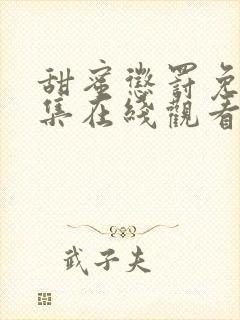 甜蜜懲罰免
集在綫觀看
武子夫